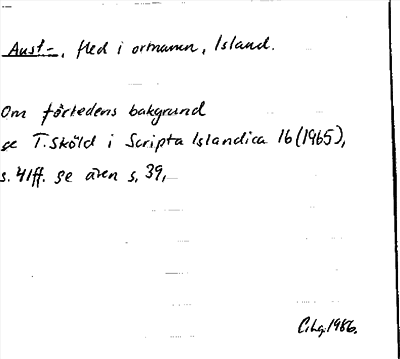 Aust-, fled i ortnamn, Island.
Om förledens bakgrund
se T. Sköld i Scripta Islandica 16 (1965),
s. 41ff. se även s. 39,
C.Lg. 1986.